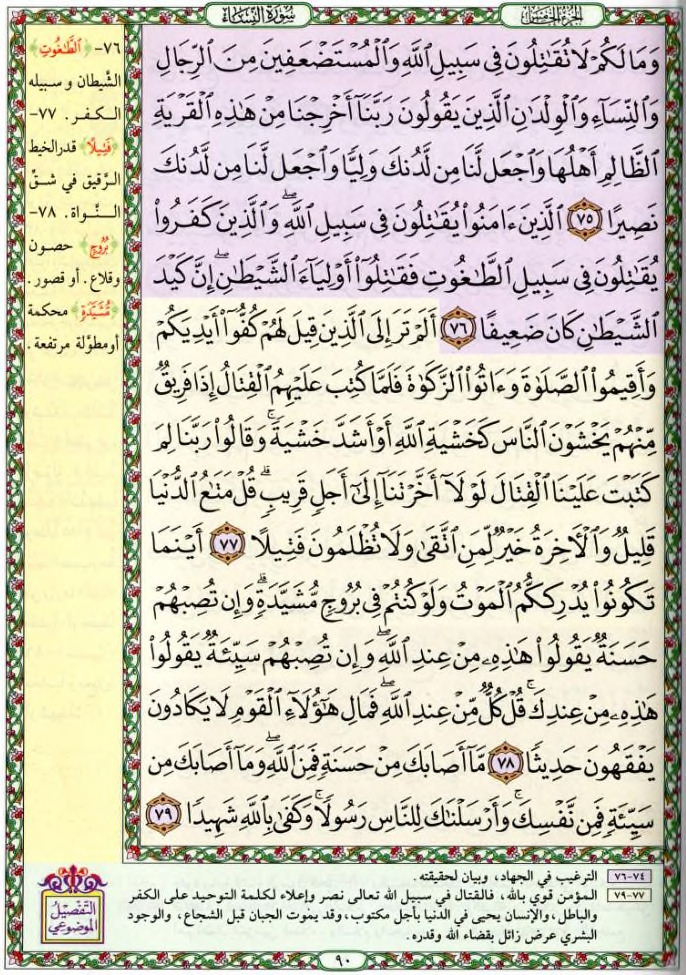 سورة النساء
الجزء الخامس
وَمَا لَكُمْ لَا تُقَٰتِلُونَ فِى سَبِيلِ ٱللَّهِ وَٱلْمُسْتَضْعَفِينَ مِنَ ٱلرِّجَالِ
وَٱلنِّسَآءِ وَٱلْوِلْدَٰنِ ٱلَّذِينَ يَقُولُونَ رَبَّنَآ أَخْرِجْنَا مِنْ هَٰذِهِ ٱلْقَرْيَةِ
ٱلظَّالِمِ أَهْلُهَا وَٱجْعَل لَّنَا مِن لَّدُنكَ وَلِيًّا وَٱجْعَل لَّنَا مِن لَّدُنكَ
نَصِيرًا ٧٥ ٱلَّذِينَ ءَامَنُوا۟ يُقَٰتِلُونَ فِى سَبِيلِ ٱللَّهِ ۖ وَٱلَّذِينَ كَفَرُوا۟
يُقَٰتِلُونَ فِى سَبِيلِ ٱلطَّٰغُوتِ فَقَٰتِلُوٓا۟ أَوْلِيَآءَ ٱلشَّيْطَٰنِ ۖ إِنَّ كَيْدَ
ٱلشَّيْطَٰنِ كَانَ ضَعِيفًا ٧٦ أَلَمْ تَرَ إِلَى ٱلَّذِينَ قِيلَ لَهُمْ كُفُّوٓا۟ أَيْدِيَكُمْ
وَأَقِيمُوا۟ ٱلصَّلَوٰةَ وَءَاتُوا۟ ٱلزَّكَوٰةَ فَلَمَّا كُتِبَ عَلَيْهِمُ ٱلْقِتَالُ إِذَا فَرِيقٌ
مِّنْهُمْ يَخْشَوْنَ ٱلنَّاسَ كَخَشْيَةِ ٱللَّهِ أَوْ أَشَدَّ خَشْيَةً ۚ وَقَالُوا۟ رَبَّنَا لِمَ
كَتَبْتَ عَلَيْنَا ٱلْقِتَالَ لَوْلَآ أَخَّرْتَنَآ إِلَىٰٓ أَجَلٍ قَرِيبٍ ۗ قُلْ مَتَٰعُ ٱلدُّنْيَا
قَلِيلٌ وَٱلْءَاخِرَةُ خَيْرٌ لِّمَنِ ٱتَّقَىٰ وَلَا تُظْلَمُونَ فَتِيلًا ٧٧ أَيْنَمَا
تَكُونُوا۟ يُدْرِككُّمُ ٱلْمَوْتُ وَلَوْ كُنتُمْ فِى بُرُوجٍ مُّشَيَّدَةٍ ۗ وَإِن تُصِبْهُمْ
حَسَنَةٌ يَقُولُوا۟ هَٰذِهِۦ مِنْ عِندِ ٱللَّهِ ۖ وَإِن تُصِبْهُمْ سَيِّئَةٌ يَقُولُوا۟
هَٰذِهِۦ مِنْ عِندِكَ ۚ قُلْ كُلٌّ مِّنْ عِندِ ٱللَّهِ ۖ فَمَالِ هَٰٓؤُلَآءِ ٱلْقَوْمِ لَا يَكَادُونَ
يَفْقَهُونَ حَدِيثًا ٧٨ مَّآ أَصَابَكَ مِنْ حَسَنَةٍ فَمِنَ ٱللَّهِ ۖ وَمَآ أَصَابَكَ مِن
سَيِّئَةٍ فَمِن نَّفْسِكَ ۚ وَأَرْسَلْنَٰكَ لِلنَّاسِ رَسُولًا ۚ وَكَفَىٰ بِٱللَّهِ شَهِيدًا ٧٩
٧٦- ﴿الطَّٰغُوتِ﴾
الشيطان و سبيله
الكفر. ٧٧-
﴿فَتِيلًا﴾ قدر الخيط
الرّقيق في شقّ
النّواة. ٧٨-
﴿بُرُوجٍ﴾ حصون
وقلاع. أو قصور.
﴿مُّشَيَّدَةٍ﴾ محكمة
أو مطوّلة مرتفعة.
التفصيل
الموضوعي
٧٤-٧٦ الترغيب في الجهاد، وبيان لحقيقته.
٧٧-٧٩ المؤمن قوي بالله، فالقتال في سبيل الله تعالى نصر وإعلاء لكلمة التوحيد على الكفر
والباطل، والإنسان يحيى في الدنيا بأجل مكتوب، وقد يموت الجبان قبل الشجاع، والوجود
البشري عرض زائل بقضاء الله وقدره.
٩٠